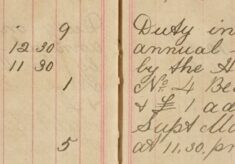 9
12 30
11 30
1
5
Duty in
annual
by the H
No 4 Be
& £1 ad
Supt Ma
at 11.30 pm